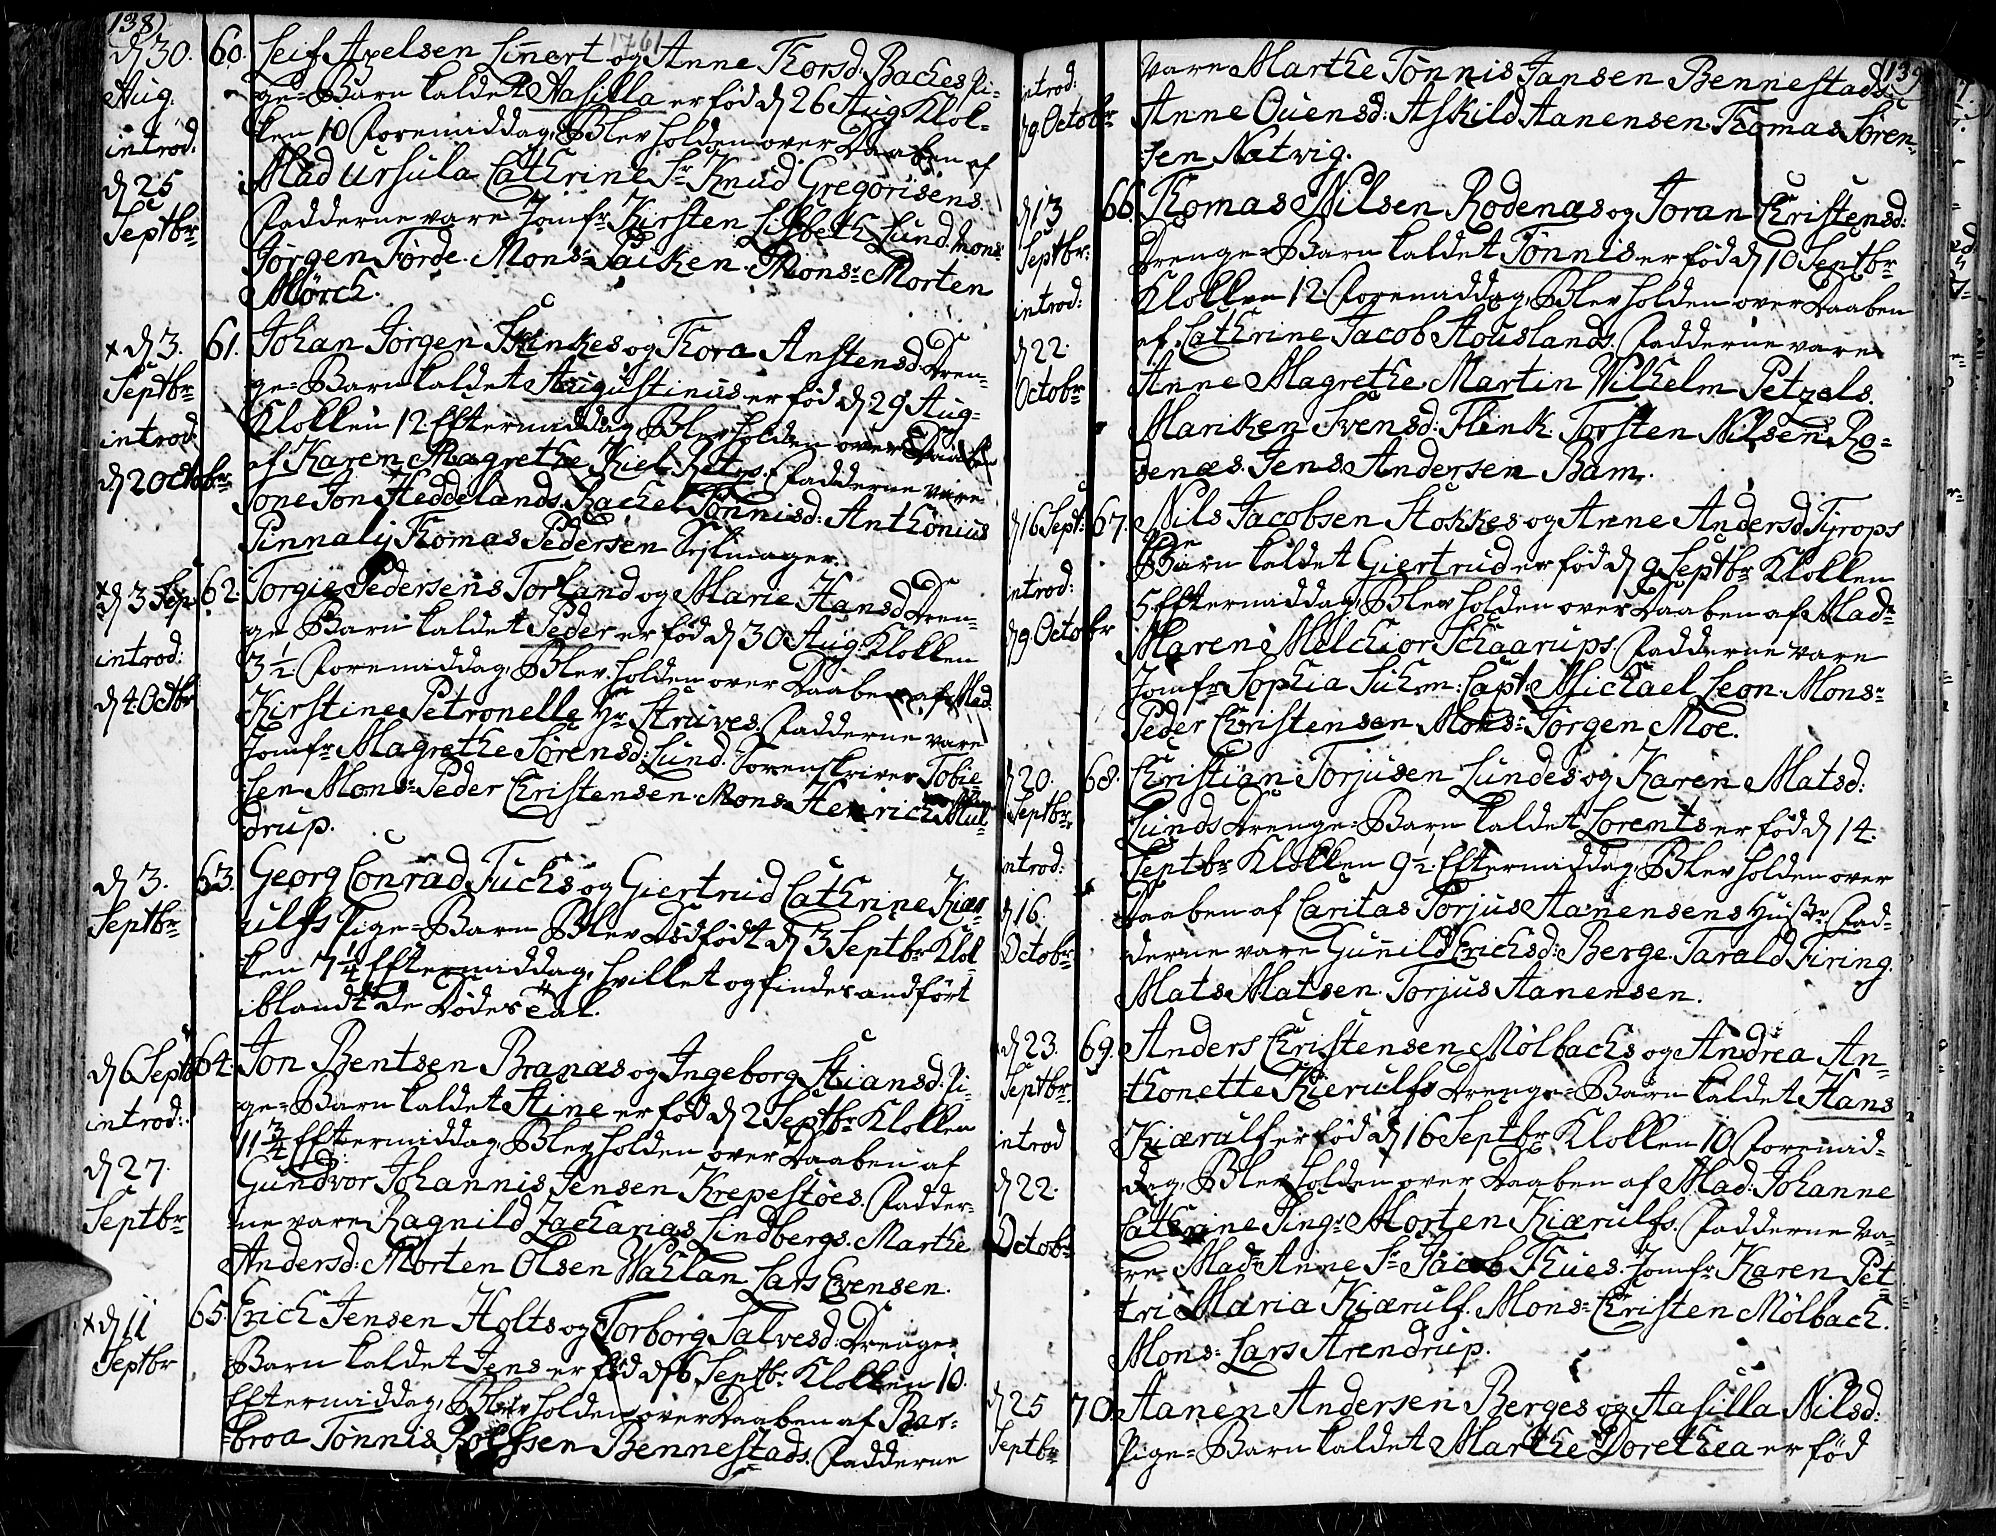 138)
1761
d 30. 60. Leif Axelsen Linert og Anne Thorsd: Baches Pi-
Aug. ge-Barn kaldet Aasilla er föd d 26 Aug. Klok-
ken 10 Formiddag, Blev holden over Daaben af
introd: Mad Ursula Cathrine Sr Knud Gregorisens.
d 25 Fadderne vare Jomfr Kirsten Lisbeth Lund. Mons
Septbr Jørgen Förde. Mons: Paiken. Mons: Morten
Mörch.
x d 3. 61. Johan Jörgen Skinkes og Thora Anstensd: Dren-
Septbr ge-Barn kaldet Augustinus er föd d 29 Aug-
introd: Klokken 12 Eftermiddag, Blev holden over Daaben
af Karen Magrethe Kiel Fadderne vare
d 2 Octobr: Tone Jon Heddelands. Rachel Tönnisd: Anthonius
Pinnalij Thomas Pedersen Sejlmager.
x d 3 Sep 62. Torgie Pedersens Torland og Marie Hansd: Dren-
ge Barn kaldet Peder er föd d 30 Aug. Klokken
introd: 3 1/2 Formiddag, Blev holden over Daaben af Mad.
d 4 Octbr Kirstine Petronelle Hr Struves. Fadderne vare
Jomfr Magrethe Sörensd: Lund. Sorenskriver Tobie
sen Mons: Peder Christensen. Mons: Henrich Mul-
drup.
d 3. 63. Georg Conrad Fuchs og Giertrud Cathrine Kiær-
Septbr ulfs Pige-Barn Blev Dödfödt d 3 Septbr Klok-
ken 7 1/4 Eftermiddag, hvillet og findes andfört
iblandt de Dödes Tal.
d 6 Septb 64. Jon Bentsen Branæs og Ingeborg Stiansd: Pi-
ge-Barn kaldet Stine er föd d 2 Septbr Klokken
introd: 11 3/4 Eftermiddag, Blev holden over Daaben af
d 27. Gundvor Johannis Jensen Krepestöes. Fadder-
Septbr ne vare Ragnild Zacharias Lindbergs. Marthe
Andersd: Morten Olsen Wahlan Lars Evensen.
x d 11 65. Erich Jensen Holts og Torborg Salvesd: Drenge-
Septbr Barn kaldet Jens er föd d 6 Septbr Klokken 10.
Eftermiddag, Blev holden over Daaben af Bar-
broa Tönnis Rolfsen Bennestads. Fadderne
139
introd: vare Marthe Tönnis Jansen Bennestads.
d 9 Octobr Anne Ouensd: Askild Aanensen. Thomas Sören-
sen Natvig.
d 13 66. Thomas Nilsen Rodenæs og Joran Christensd:
Septbr: Drenge-Barn kaldet Tönnis er föd d 10 Septbr
introd: Klokken 12 Formiddag, Blev holden over Daaben
d 22. af Cathrine Jacob Stouslands. Fadderne vare
Octobr Anne Magrethe Martin Vilhelm Petzels.
Mariken Svensd: Flink. Torsten Nilsen Ro-
denæs. Jens Andersen Bam.
d 16 Sept: 67. Nils Jacobsen Stokkes og Anne Andersd Tyrops
Barn kaldet Giertrud er föd d 9 Septbr Klokken
introd: 5 Eftermiddag, Blev holden over Daaben af Mad:
d 9 Octobr Maren Melchior Schaarups. Fadderne vare
Jomfr Sophia Suhm: Capt: Michael Leon. Mons:
Peder Christensen Mons: Jörgen Moe.
d 20. 68. Christian Torjusen Lundes og Karen Matsd:
Septbr Lunds Drenge-Barn kaldet Lorents er föd d 14.
introd: Septbr Klokken 9 1/2. Eftermiddag, Blev holden over
d 16. Daaben af Caritas Torjus Aanensens Hustr. Fad-
Octobr derne vare Gunnild Erichsd: Berge. Tarald Firing.
Mats Matsen. Torjus Aanensen.
d 23. 69. Anders Christensen Mölbachs og Andrea An-
Septbr thonette Kierulfs Drenge-Barn kaldet Hans
introd Kiærulf er föd d 16 Septbr Klokken 10 Formid-
d 22. dag, Blev holden over Daaben af Mad: Johanne
Cathrine Morten Kiærulfs. Fadderne va-
Octobr re Mad: Anne Sr Jacob Thues. Jomfr Karen Pet-
tri Maria Kiærulf. Mons: Christen Mölbach.
Mons: Lars Arendrup.
d 25 70. Aanen Andersen Berges og Aasilla Nilsd:
Septbr Pige-Barn kaldet Marthe Dorethea er föd